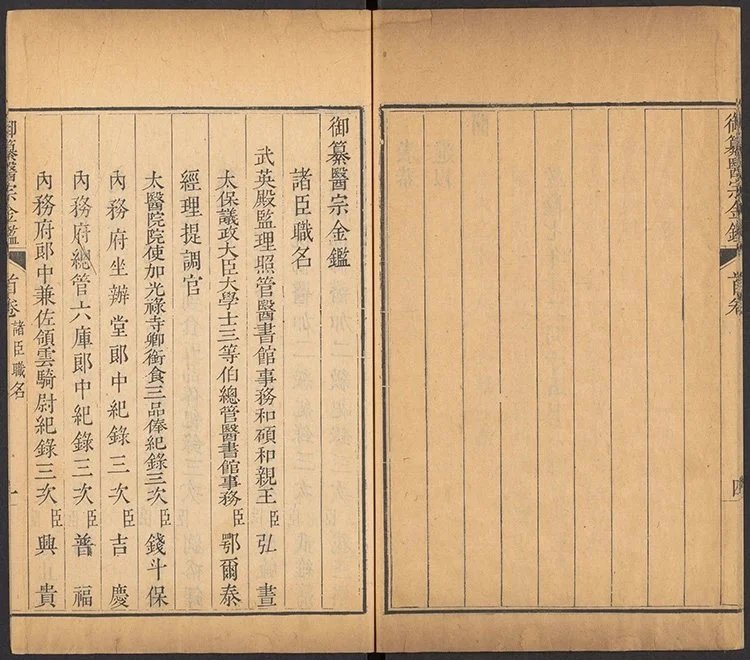 御纂醫宗金鑑 首卷 四
御纂醫宗金鑑
諸臣職名
武英殿監理照管醫書館事務和碩和親王臣弘晝
太保議政大臣大學士三等伯總管醫書館事務臣鄂爾泰
經理提調官
太醫院院使加光祿寺卿銜食三品俸紀錄三次臣錢斗保
內務府坐辦堂郎中紀錄三次臣吉慶
內務府總管六庫郎中紀錄三次臣普福
內務府郎中兼佐領雲騎尉紀錄三次臣興貴
御纂醫宗金鑑 首卷 諸臣職名 一